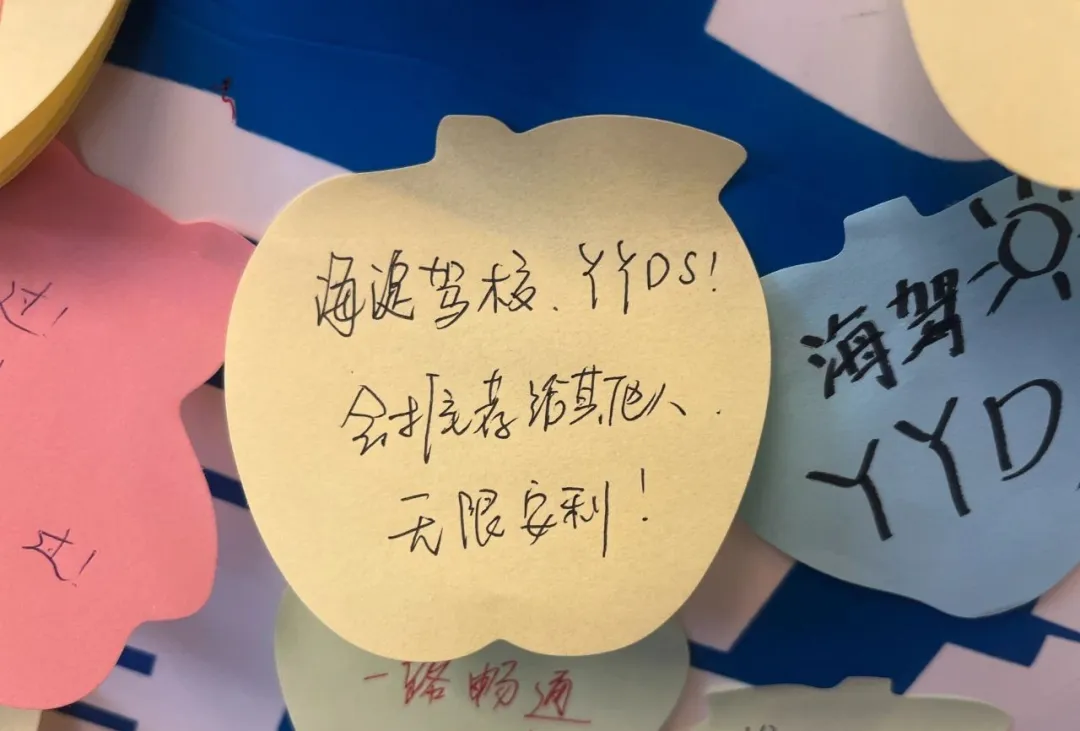 海淀驾校、YYDS!
会推荐给其他人.
无限安利!
海驾
YYD
一路畅通
过!
过!